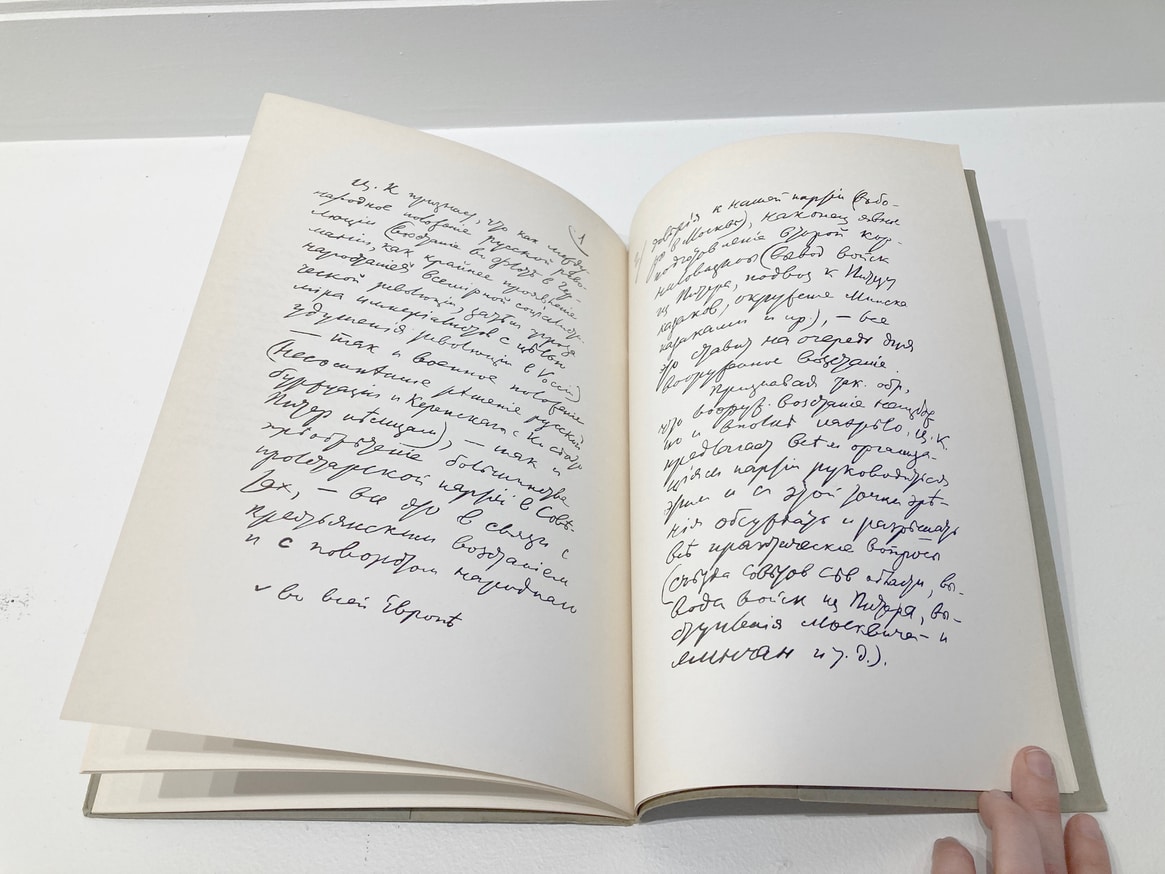 Ц. К признает, что как между-
1
народное положение русской рево-
люции (возстание во флоте в Гер-
мании, как крайнее проявление
нарастания всемирной социалисти-
ческой революции, затѣм угроза
мира империалистов с целью
удушения революции в России)
— так и военное положение
(несомнѣнное рѣшение русской
буржуазии и Керенскаго с Ко сдать
Питер нѣмцам), — так и
приобрѣтение большинства
пролетарской партией в Совѣ-
тах, — все это в связи с
крестьянским возстанием
и с поворотом народнаго
✓ во всей Европѣ
2) довѣрія к нашей партіи (выбо-
ры в Москвѣ), наконец явное
подготовленіе второй кор-
ниловщины (вывод войск
из Питера, подвоз к Питеру
казаков, окружение Минска
казаками и пр.), — все
это ставит на очередь дня
вооруженное возстание.
Признавая так. обр.,
что вооруж. возстание неизбеж
но и вполнѣ назрѣло, Ц. К.
предлагает всѣм организа-
циям партіи руководиться
этим и с этой точки зрѣ-
нія обсуждать и разрѣшать
всѣ практическіе вопросы
(съѣзда Совѣтов Сѣв. области, вы-
вода войск из Питера, вы-
ступленія москвичей и
минчан и т. д.).